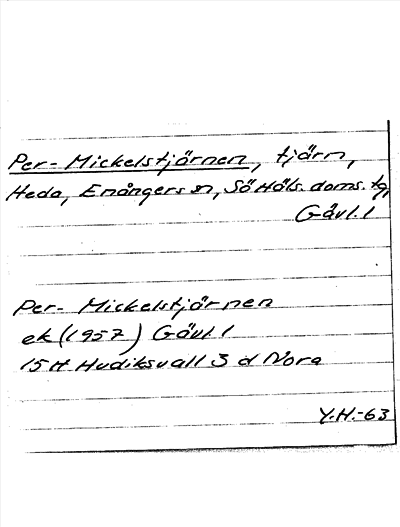 Per-Mickelstjärnen, tjärn,
Heda, Enångers sn, Sö Häls. doms. tg,
Gävl. l
Per-Mickelstjärnen
ek (1957) Gävl. l
15H Hudiksvall 3 d Nora
Y.H.-63